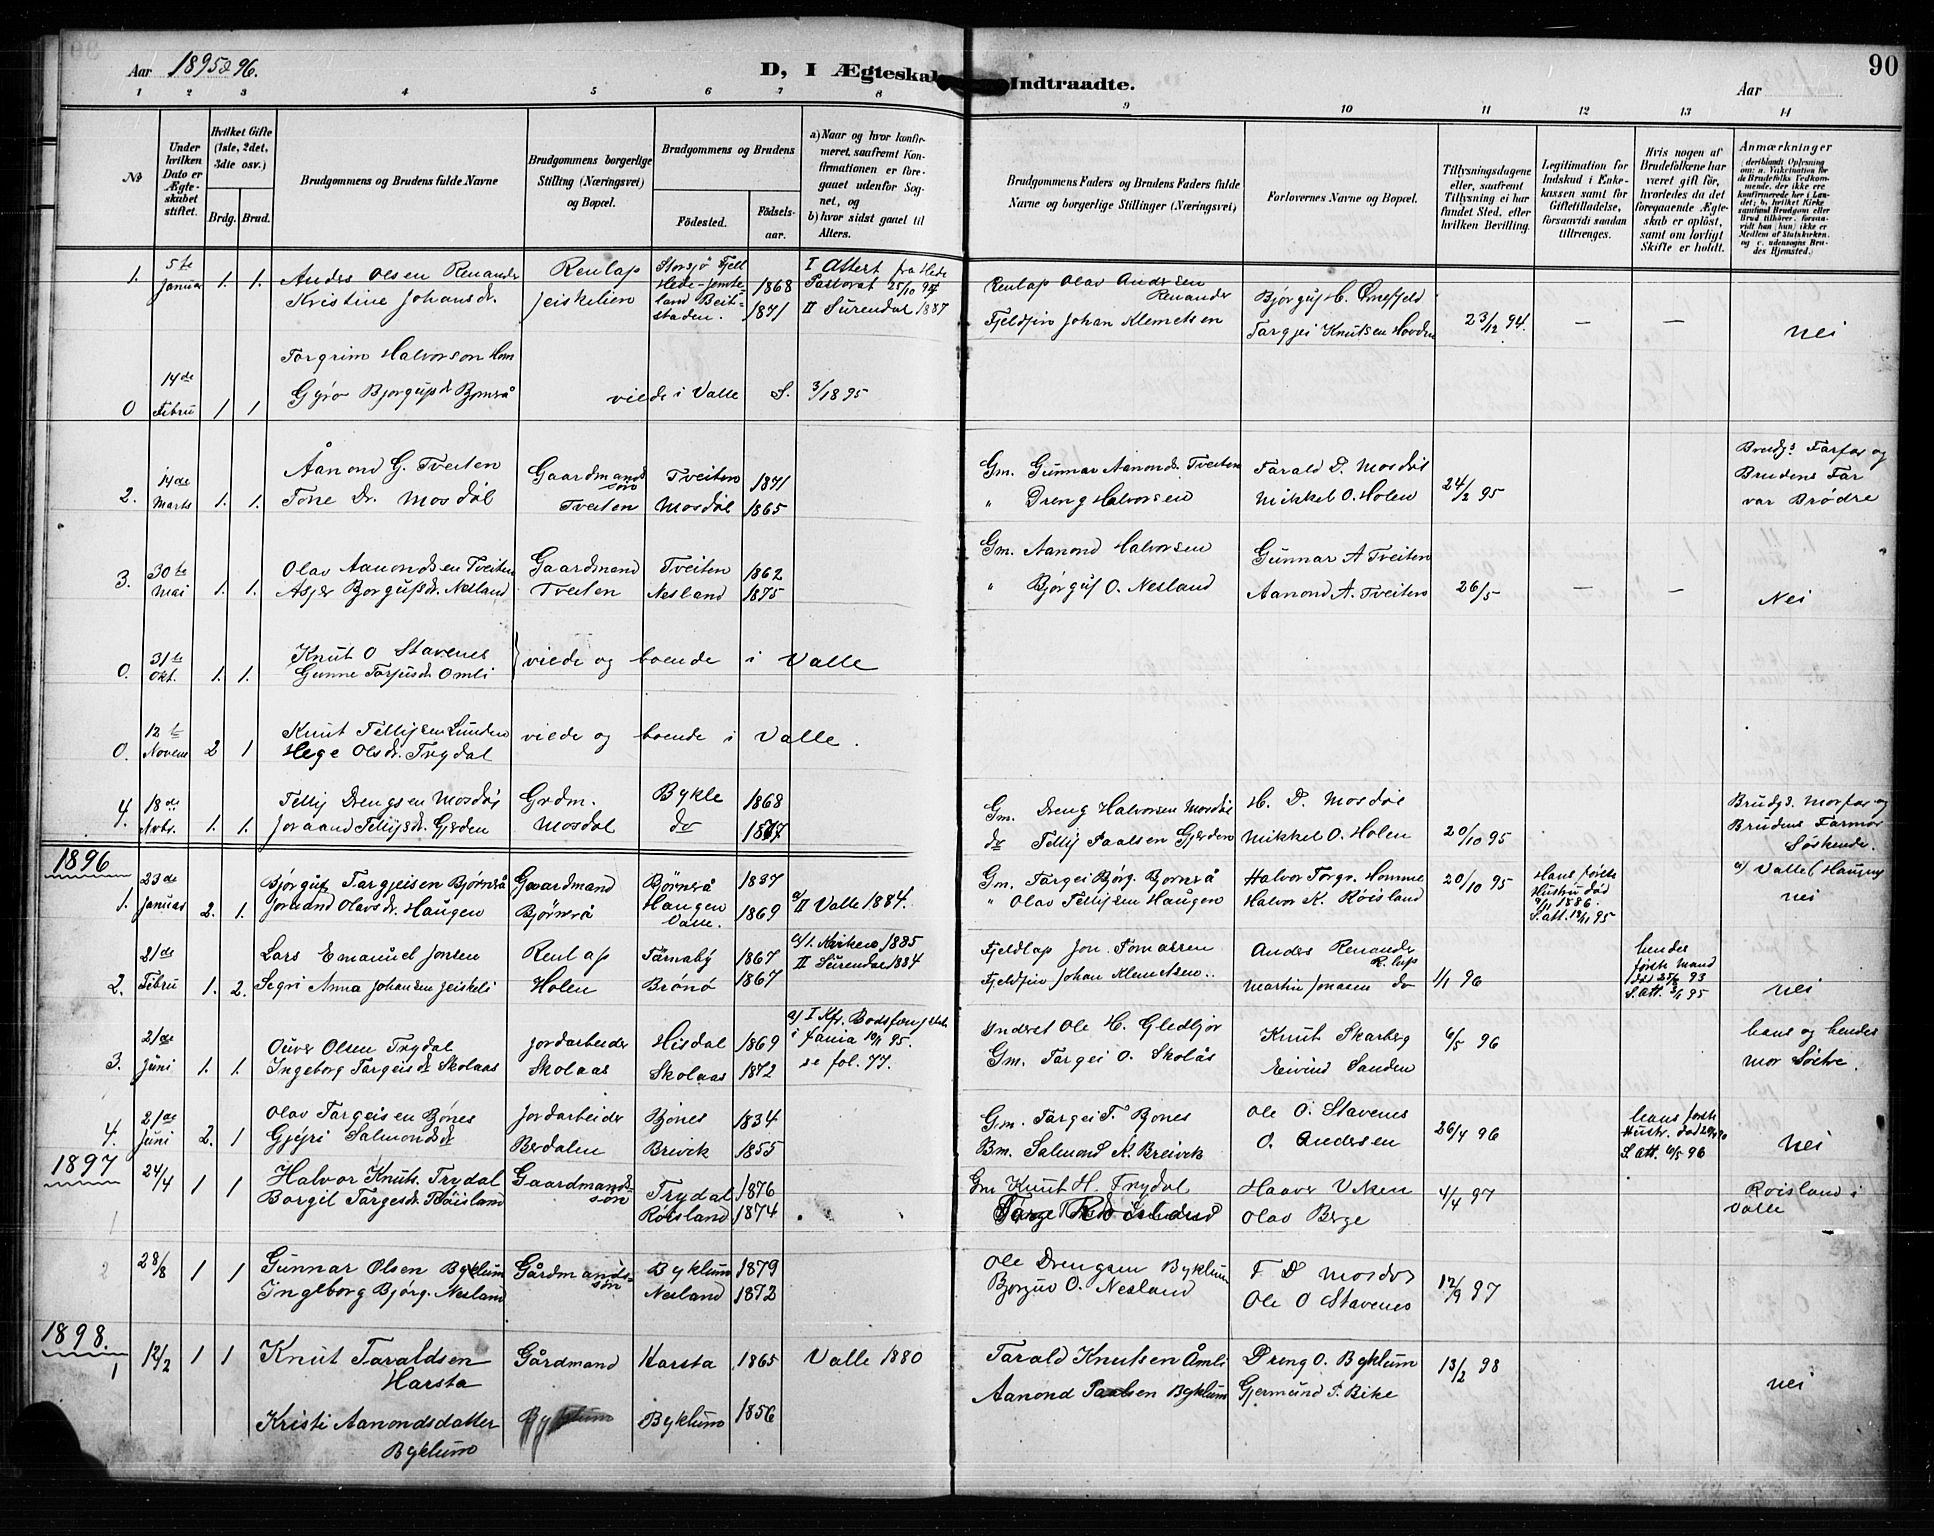 Aar 1895 & 96.
D, I Ægteskab Indtraadte.
Aar
90
1 2 3 4 5 6 7 8 9 10 11 12 13 14
No
Under hvilken Dato er Ægteskabet stiftet.
Hvilket Gifte (1ste, 2det, 3die osv.)
Brdg. Brud.
Brudgommens og Brudens fulde Navne
Brudgommens borgerlige Stilling (Næringsvei) og Bopæl.
Brudgommens og Brudens
Fødested.
Fødselsaar.
a) Naar og hvor konfirmeret, saafremt Konfirmationen er foregaaet udenfor Sognet, og
b) hvor sidst gaaet til Alters.
Brudgommens Faders og Brudens Faders fulde Navne og borgerlige Stillinger (Næringsvei)
Forlovernes Navne og Bopæl.
Tillysningsdagene eller, saafremt Tillysning ei har fundet Sted, efter hvilken Bevilling.
Legitimation for Indskud i Enkekassen samt for Giftetilladelse, forsaavidt saadan tiltrænges.
Hvis nogen af Brudefolkene har været gift før, hvorledes da det foregaaende Ægteskab er opløst, samt om lovligt Skifte er holdt.
Anmærkninger
(deriblandt Oplysning om: a. Vaccination for de Brudefolks Vedkommende, der ikke ere konfirmerede her i Landet; b. hvilket Kirkesamfund Brudgom eller Brud tilhører, forsaavidt han (hun) ikke er Medlem af Statskirken, og c. udensogns Brudes Hjemsted.)
1. 5te Januar 1. 1. Anders Olsen Renander Renlap Storsjö Fjell Hede-Jemteland 1868 I Attert fra Hede Pastorat 25/10 94 Renlap Olav Andersen Renander Bjørguf H. Ørnefjeld
Kristine Johansdr. Jeiskelien Beitstaden. 1871 II Surendal 1887 Fjeldfin Johan Klemetsen Targjei Knutsen Hovden 23/12 94. — — Nei
Targrim Halvorson Hom
0 14de Febru 1 1 Gyro Bjorgufsdr Bjørnså viede i Valle S. 3/1895
2. 14de Marts 1. 1. Ånond G. Tveiten Gaardmandssøn Tveiten 1871 Gm. Gunnar Aanonds. Tveiten Tarald D. Mosdøl 24/2 95 Brudgs Farfar og
Tone Dr. Mosdøl Tveiten Mosdøl 1865 " Dreng Halvorsen Mikkel O. Holen Brudens Far var Brödre
3. 30te Mai 1. 1. Olav Aanondsen Tveiten Gaardmand Tveiten 1862 Gm. Aanond Halvorsen Gunnar A Tveiten 26/5 — —
Asjer Bjorgufsdr. Nesland Tveiten Nesland 1875 " Bjørguf O. Nesland Aanond A. Tveiten Nei
0. 31te Okt. 1. 1. Knut O Stavenes } viede og boende i Valle
Gunne Tarjeisdr. Omli
0. 12te Novem 2 1 Knut Tellefsen Lunden viede og boende i Valle.
Hege Olsdr. Trydal
4. 18de Nvbr. 1. 1. Tellif Drengsen Mosdøl Grdm. Bykle 1868 Gm. Dreng Halvorsen Mosdøl H. D. Mosdøl 20/10 95 Brudgs. Morfar og
Joraand Tellifsdr. Gjerden Mosdøl do 1877 do Tellif Paalsen Gjerden Mikkel O. Holen Brudens Farmor Søskende.
1896
1. 23de Januar 2. 1. Bjørguf Targjeisen Bjørnså Gaardmand Bjørnså 1837 Gm. Targei Bjørg. Bjornså Halvor Torgr. Homme 20/10 95 Hans første Hustru død 9/11 1886. S. att. 19/11 95 a) Valle (Haugen)
Jorand Olavsdr. Haugen Bjørnså Haugen Valle. 1869 a/ II Valle 1884. " Olav Tellefsen Haugen Halvor K. Røisland nei
2. 21de Febru 1. 2. Lars Emanuel Jonsen Renlap Tärnaby 1867 a/1. Kirken 1885 Fjeldlap Jon Tomassen Anders Renander R. lap 1/1 96 hendes første Mand død 25/5 93 S. Att. 3/1 95
Segri Anna Johansen Jeiskeli Holen Brönö 1867 II Surendal 1884 Fjeldfin Johan Klemetsen.. Martin Jonasen do nei
3. 21de Juni 1. 1. Ouver Olsen Trydal Jordarbeider Hisdal 1869 a) I Kfr. Bodsfængslet i Xania 10/1 95. Inderst Ole H. Gledbjor Knut Skarberg 6/5 96 hans og hendes
Ingeborg Targeisdr Skolaas Skolaas Skolaas 1872 se fol. 77. Gm. Targei O. Skolås Eivind Sanden mor Søstre.
4. 21de Juni 2. 1 Olav Targeisen Bjønes Jordarbeider Bjønes 1834 Gm. Targei T. Bones Ole O. Stavenes 26/4 96 hans første Hustr. død S. Att. 6/5 96
Gjyri Salmondsdr Berdalen Breivik 1855 Bm. Salmond K. Breivik O. Andersen Nei
1897
1 24/4 1 1 Halvor Knuts. Trydal Gaardmandssøn Trydal 1876 Gm Knut H. Trydal Haaver Viken 4/4 97 Roisland i Valle
Borgil Targesdr. Røisland Røisland 1874 Targe Røisland Olav Berge
2 28/8 1 1 Gunnar Olsen Byklum Gårdmandssøn Byklum 1879 Ole Drengsen Byklum T. D Mosdøl 12/9 97
Ingeborg Bjørg. Nesland Nesland 1872 Bjorguv O. Nesland Ole O Stavenes
1898.
1 12/2 1 1 Knut Taraldsen Harsta Gårdmand Harsta 1865 Valle 1880 Tarald Knutsen Åmli Dreng O. Byklum 13/2 98
Kristi Aanondsdatter Byklum Byklum Byklum 1856 Aanond Paalsen Byklum Gjermund P. Bike nei